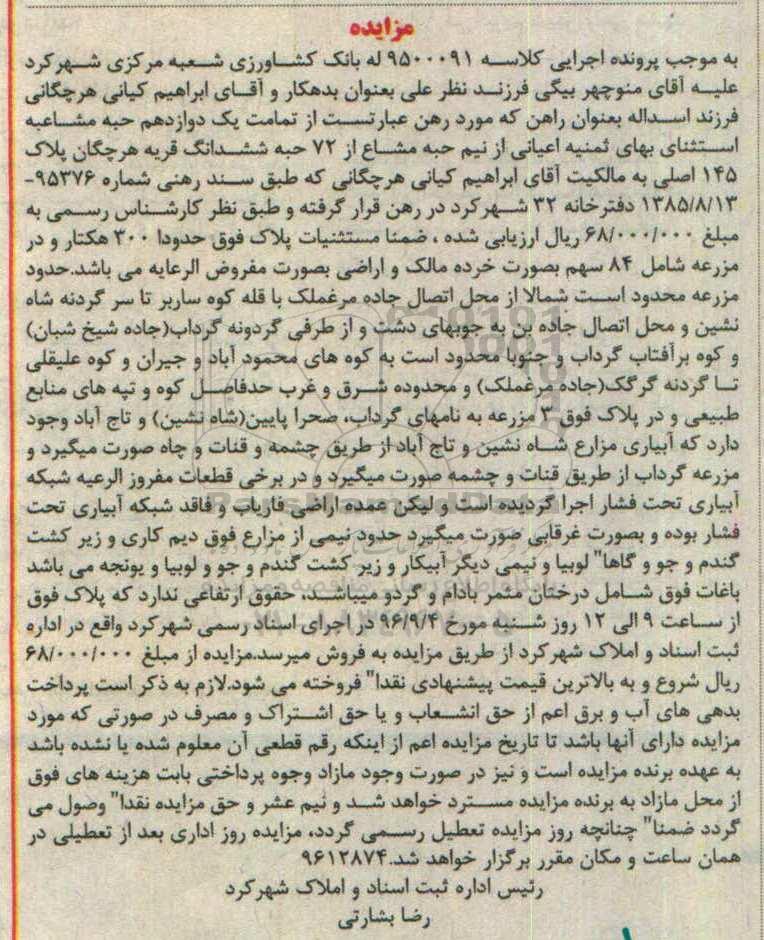 مزایده
به موجب پرونده اجرایی کلاسه ۹۵۰۰۰۹۱ له بانک کشاورزی شعبه مرکزی شهرکرد
علیه آقای منوچهر بیگی فرزند نظر علی بعنوان بدهکار و آقای ابراهیم کیانی هرچگانی
فرزند اسداله بعنوان راهن که مورد رهن عبارتست از تمامت یک دوازدهم حبه مشاعبه
استثنای بهای ثمنیه اعیانی از نیم حبه مشاع از ۷۲ حبه ششدانگ قریه هرچگان پلاک
۱۴۵ اصلی به مالکیت آقای ابراهیم کیانی هرچگانی که طبق سند رهنی شماره ۹۵۳۷۶-
۱۳۸۵/۸/۱۳ دفترخانه ۳۲ شهرکرد در رهن قرار گرفته و طبق نظر کارشناس رسمی به
مبلغ ۶۸/۰۰۰/۰۰۰ ریال ارزیابی شده ، ضمنا مستثنیات پلاک فوق حدودا ۳۰۰ هکتار و در
مزرعه شامل ۸۴ سهم بصورت خرده مالک و اراضی بصورت مفروض الرعایه می باشد.حدود
مزرعه محدود است شمالا از محل اتصال جاده مرغملک با قله کوه ساربر تا سر گردنه شاه
نشین و محل اتصال جاده بن به جوبهای دشت و از طرفی گردونه گرداب(جاده شیخ شبان)
و کوه برآفتاب گرداب و جنوبا محدود است به کوه های محمود آباد و جیران و کوه علیقلی
تا گردنه گرگک(جاده مرغملک) و محدوده شرق و غرب حدفاصل کوه و تپه های منابع
طبیعی و در پلاک فوق ۳ مزرعه به نامهای گرداب، صحرا پایین(شاه نشین) و تاج آباد وجود
دارد که آبیاری مزارع شاه نشین و تاج آباد از طریق چشمه و قنات و چاه صورت میگیرد و
مزرعه گرداب از طریق قنات و چشمه صورت میگیرد و در برخی قطعات مفروز الرعیه شبکه
آبیاری تحت فشار اجرا گردیده است و لیکن عمده اراضی فاریاب و فاقد شبکه آبیاری تحت
فشار بوده و بصورت غرقابی صورت میگیرد حدود نیمی از مزارع فوق دیم کاری و زیر کشت
گندم و جو و گاها" لوبیا و نیمی دیگر آبیکار و زیر کشت گندم و جو و لوبیا و یونجه می باشد
باغات فوق شامل درختان مثمر بادام و گردو میباشد، حقوق ارتفاعی ندارد که پلاک فوق
از ساعت ۹ الی ۱۲ روز شنبه مورخ ۹۶/۹/۴ در اجرای اسناد رسمی شهرکرد واقع در اداره
ثبت اسناد و املاک شهرکرد از طریق مزایده به فروش میرسد.مزایده از مبلغ ۶۸/۰۰۰/۰۰۰
ریال شروع و به بالاترین قیمت پیشنهادی نقدا" فروخته می شود.لازم به ذکر است پرداخت
بدهی های آب و برق اعم از حق انشعاب و یا حق اشتراک و مصرف در صورتی که مورد
مزایده دارای آنها باشد تا تاریخ مزایده اعم از اینکه رقم قطعی آن معلوم شده یا نشده باشد
به عهده برنده مزایده است و نیز در صورت وجود مازاد وجوه پرداختی بابت هزینه های فوق
از محل مازاد به برنده مزایده مسترد خواهد شد و نیم عشر و حق مزایده نقدا" وصول می
گردد ضمنا" چنانچه روز مزایده تعطیل رسمی گردد، مزایده روز اداری بعد از تعطیلی در
همان ساعت و مکان مقرر برگزار خواهد شد.۹۶۱۲۸۷۴
رئیس اداره ثبت اسناد و املاک شهرکرد
رضا بشارتی